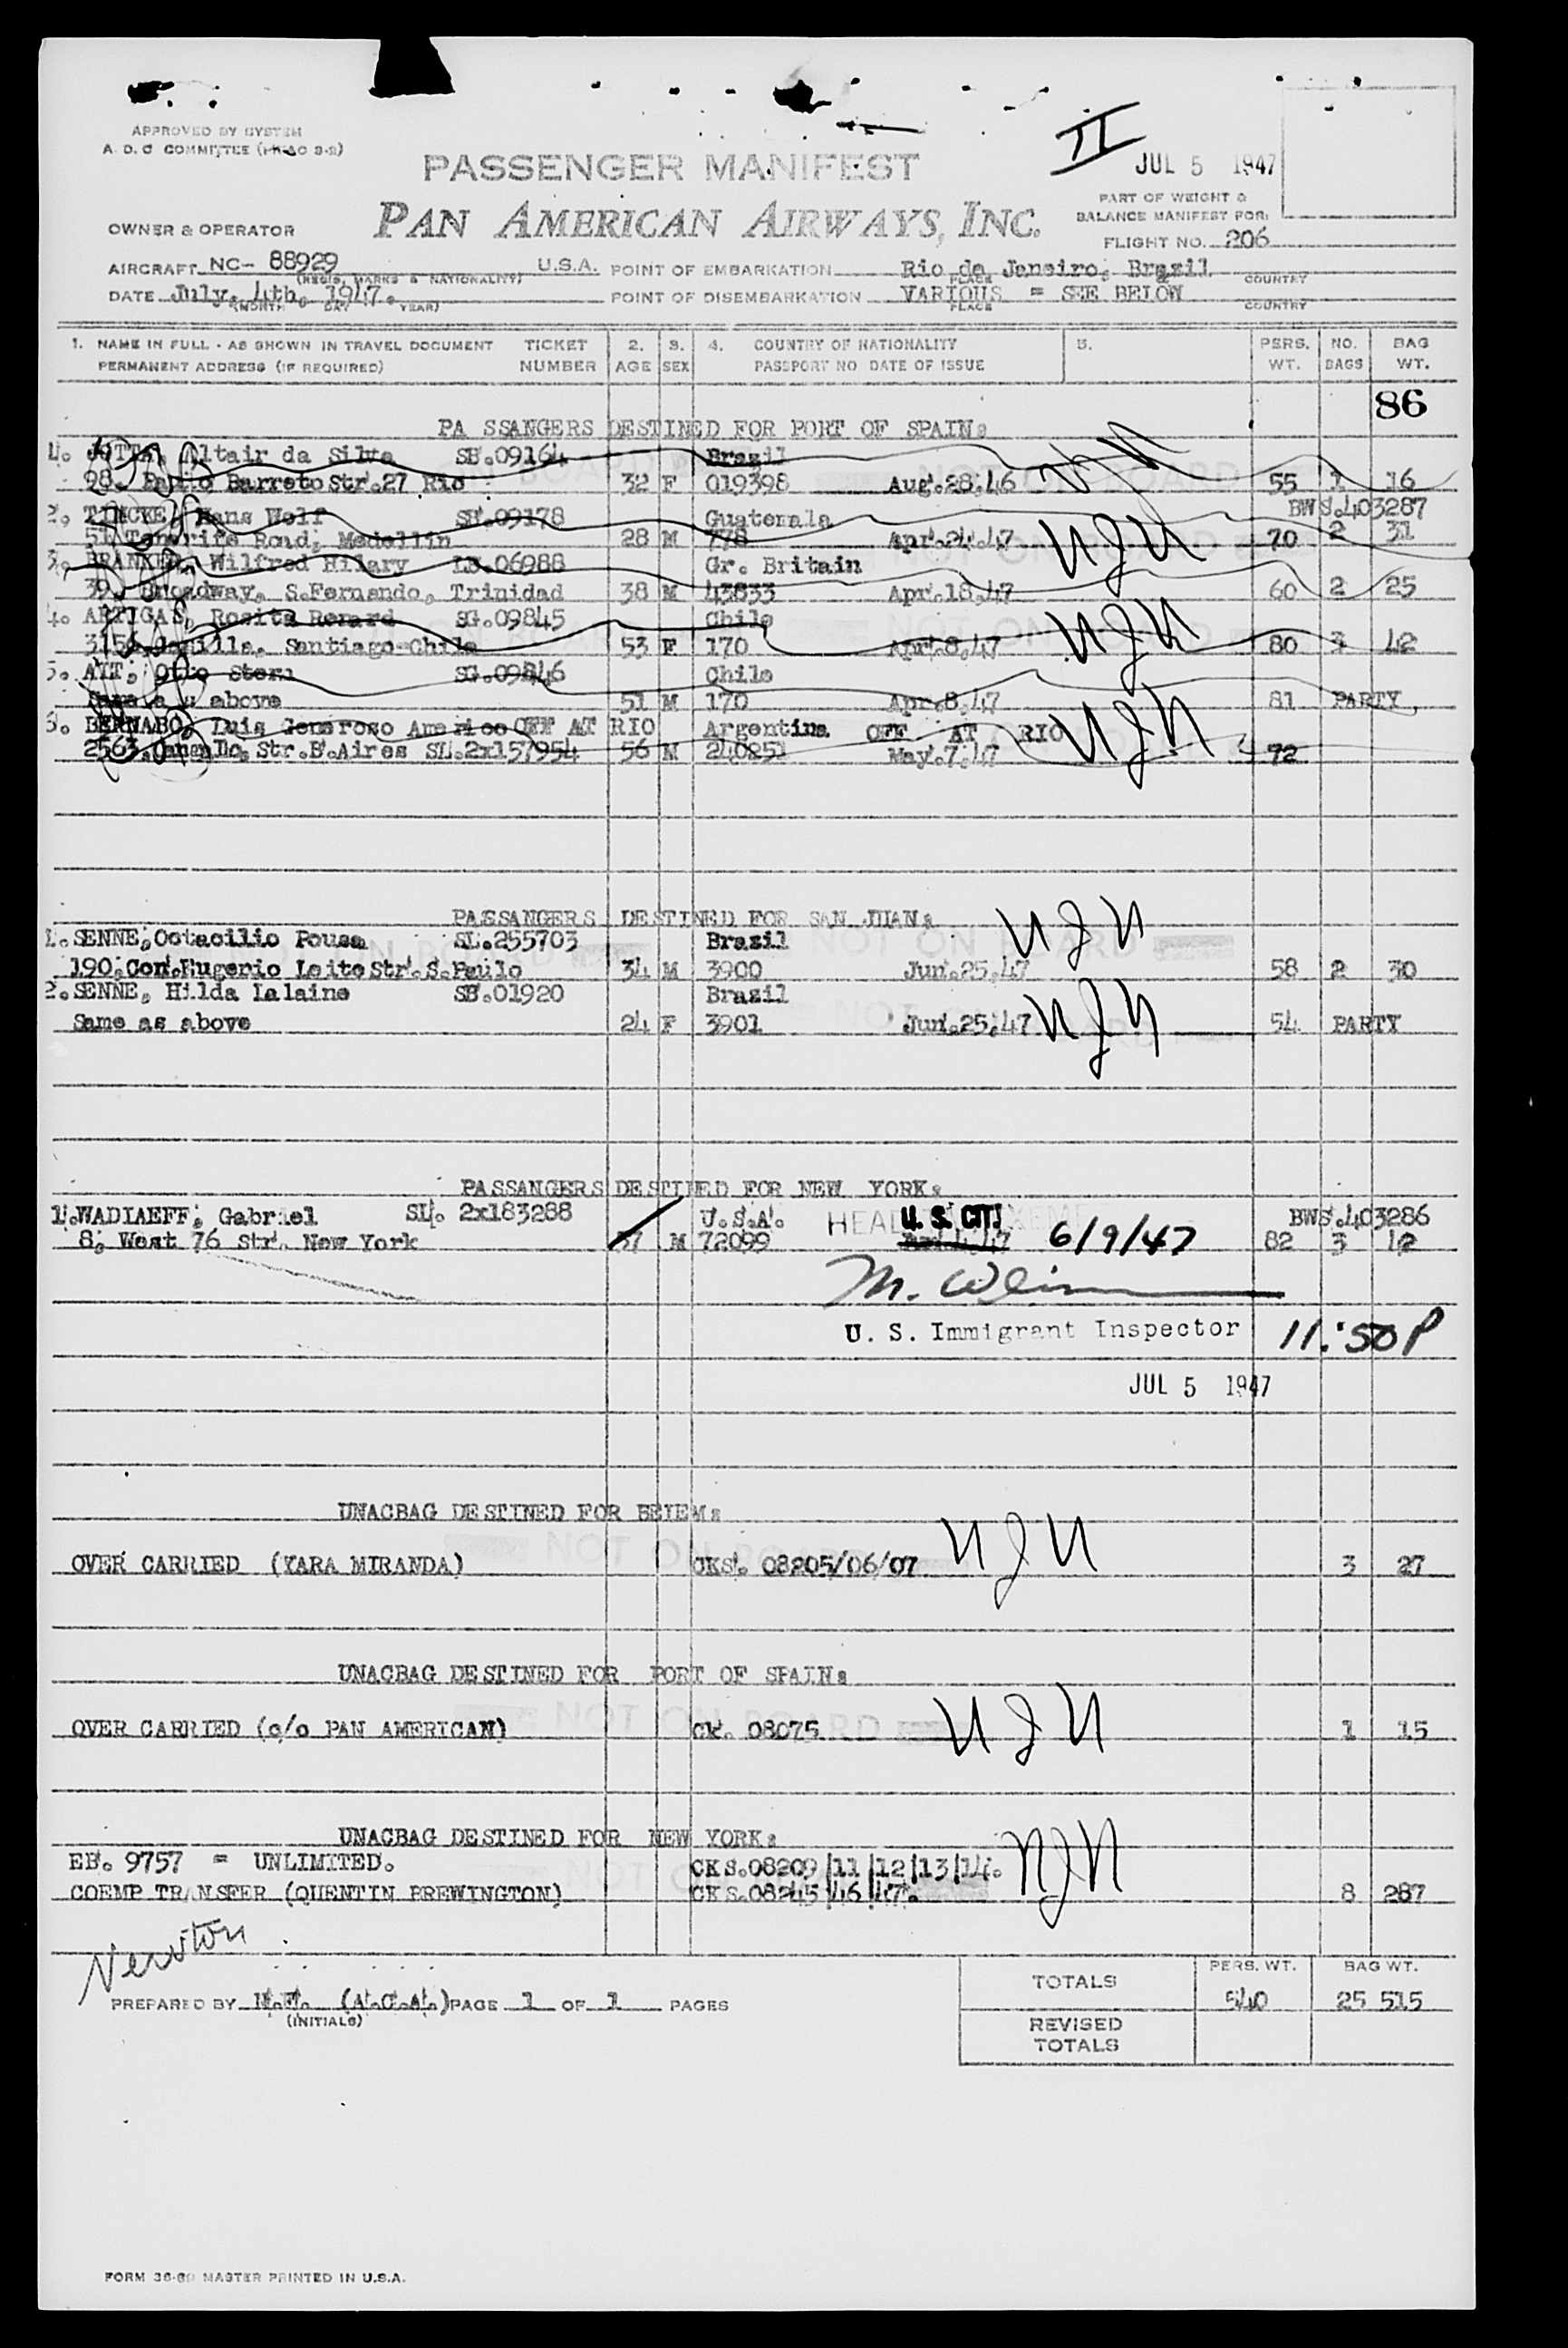 APPROVED BY SYSTEM
A. D. C COMMITTEE
II
JUL 5 1947
PASSENGER MANIFEST
PART OF WEIGHT &
BALANCE MANIFEST FOR:
OWNER & OPERATOR
PAN AMERICAN AIRWAYS, INC.
FLIGHT NO. 206
AIRCRAFT NC- 88929 U.S.A. POINT OF EMBARKATION Rio de Janeiro, Brazil
(REGIS. MARKS & NATIONALITY) PLACE COUNTRY
DATE July. 4th. 1947. POINT OF DISEMBARKATION VARIOUS = SEE BELOW
(MONTH DAY YEAR) PLACE COUNTRY
1. NAME IN FULL - AS SHOWN IN TRAVEL DOCUMENT TICKET 2. 3. 4. COUNTRY OF NATIONALITY 5. PERS. NO. BAG
PERMANENT ADDRESS (IF REQUIRED) NUMBER AGE SEX PASSPORT NO DATE OF ISSUE WT. BAGS WT.
86
PA SSANGERS DESTINED FOR PORT OF SPAIN:
1. Altair da Silva SB.09164 Brazil NJN
98. Barreto Str.27 Rio 32 F 019398 Aug.28.46 55 1 16
2. Hans Wolf SB.09178 Guatemala BWS.403287
Road, Medellin 28 M 778 Apr.24.47 NJN 70 2 31
3. Wilfred Hilary LB.06988 Gr. Britain
39. Broadway. S.Fernando, Trinidad 38 M 43833 Apr.18.47 60 2 25
4. ARTIGAS, Rosita Renard SG.09845 Chile NJN
Santiago-Chile 53 F 170 Apr.8.47 80 3 42
5. Otto Stern SG.09846 Chile
Same as above 51 M 170 Apr.8.47 81 PARTY
6. BERNABO, Luis Generoso Americo OFF AT RIO Argentina OFF AT RIO NJN
2563. Str.B.Aires SL.2x157954 56 M 240251 May.7.47 72
PASSANGERS DESTINED FOR SAN JUAN:
1. SENNE, Octacilio Pousa SL.255703 Brazil NJN
190.Con.Eugenio Leite Str.S.Paulo 34 M 3900 Jun.25.47 58 2 30
2. SENNE, Hilda Lalaine SB.01920 Brazil
Same as above 24 F 3901 Jun.25.47 NJN 54 PARTY
PASSANGERS DESTINED FOR NEW YORK:
1. WADIAEFF, Gabriel SL. 2x183288 U.S.A. HEAD U. S. CIT. BWS.403286
8, West 76 Str. New York M 72099 6/9/47 82 3 42
U. S. Immigrant Inspector 11:50P
JUL 5 1947
UNACBAG DESTINED FOR BELEM:
OVER CARRIED (YARA MIRANDA) CKS. 08205/06/07 NJN 3 27
UNACBAG DESTINED FOR PORT OF SPAIN:
OVER CARRIED (c/o PAN AMERICAN) CK. 08075 NOT ON BOARD NJN 1 15
UNACBAG DESTINED FOR NEW YORK:
EB. 9757 = UNLIMITED. CKS.08209/11/12/13/14. NJN
COEMP TRANSFER (QUENTIN BREWINGTON) CKS.08245/46/47. 8 287
PREPARED BY (A.C.A.) PAGE 1 OF 1 PAGES
(INITIALS)
PERS. WT. BAG WT.
TOTALS 540 25 515
REVISED
TOTALS
FORM 36-80 MASTER PRINTED IN U.S.A.